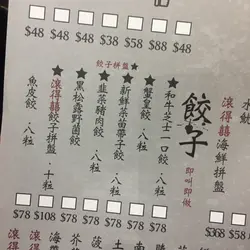 $48 $48 $38 $58 $88 $48
水
滾得囍海鮮拼盤
$368 $58
餃子
即叫即做
餃子拼盤
★和牛芝士一口餃·八粒
★蟹皇餃·八粒
★新鮮菜苗帶子餃·八粒
★韮菜豬肉餃·八粒
★黑松露野菌餃·八粒
滾得囍餃子拼盤·十粒
魚皮餃·八粒
$78 $108 $78 $78 $78 $78 $78
土
菠
芥
海
滾得